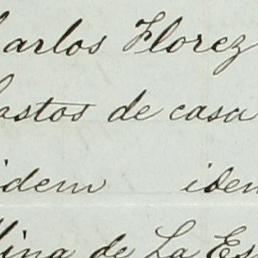 Carlos Florez
Gastos de casa
idem idem
lina de La Es